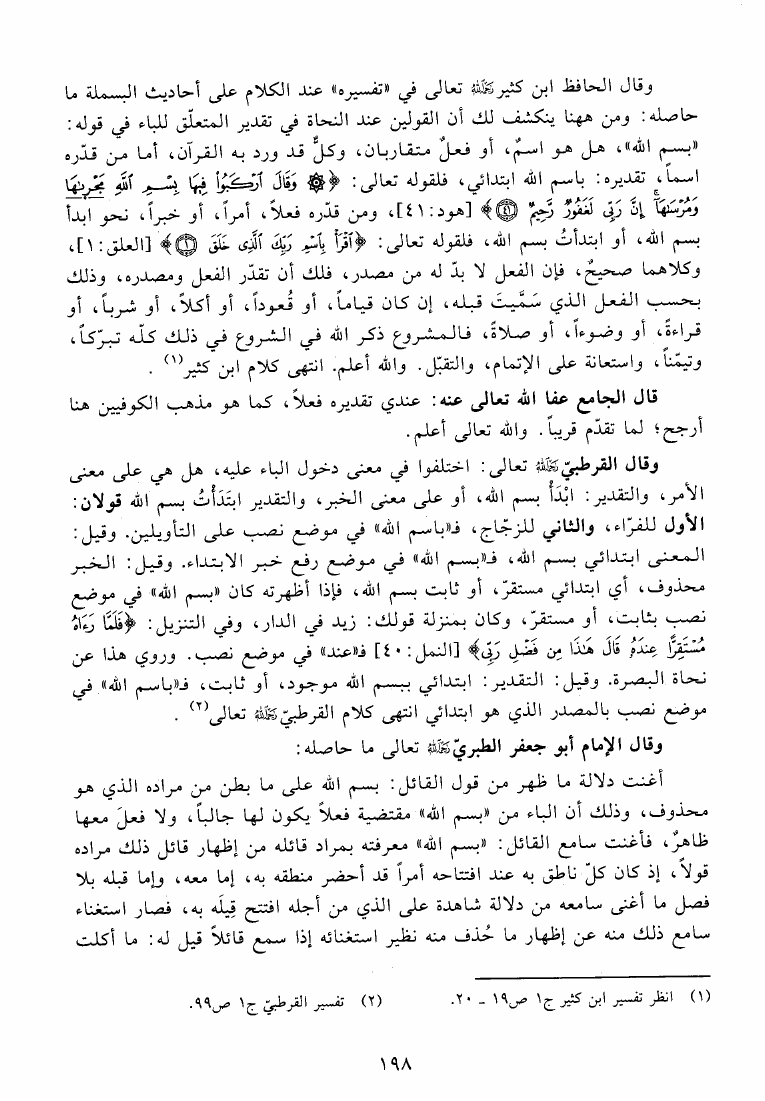 وقال الحافظ ابن كثير رحمه الله تعالى في «تفسيره» عند الكلام على أحاديث البسملة ما
حاصله: ومن ههنا ينكشف لك أن القولين عند النحاة في تقدير المتعلّق للباء في قوله:
«بسم الله»، هل هو اسمٌ، أو فعلٌ متقاربان، وكلٌّ قد ورد به القرآن، أما من قدّره
اسماً، تقديره: باسم الله ابتدائي، فلقوله تعالى: ﴿۞ وَقَالَ ٱرْكَبُواْ فِيهَا بِسْمِ ٱللَّهِ مَجْر۪ىٰهَا
وَمُرْسَىٰهَآۚ إِنَّ رَبِّى لَغَفُورٌ رَّحِيمٌ ٤١﴾ [هود:٤١]، ومن قدّره فعلاً، أمراً، أو خبراً، نحو ابدأ
بسم الله، أو ابتدأتُ بسم الله، فلقوله تعالى: ﴿ٱقْرَأْ بِٱسْمِ رَبِّكَ ٱلَّذِى خَلَقَ ١﴾ [العلق:١]،
وكلاهما صحيحٌ، فإن الفعل لا بدّ له من مصدر، فلك أن تقدّر الفعل ومصدره، وذلك
بحسب الفعل الذي سَمَّيتَ قبله، إن كان قياماً، أو قُعوداً، أو أكلاً، أو شرباً، أو
قراءةً، أو وضوءاً، أو صلاةً، فالمشروع ذكر الله في الشروع في ذلك كلّه تبرّكاً،
وتيمّناً، واستعانة على الإتمام، والتقبّل. والله أعلم. انتهى كلام ابن كثير(١).
قال الجامع عفا الله تعالى عنه: عندي تقديره فعلاً، كما هو مذهب الكوفيين هنا
أرجح؛ لما تقدّم قريباً. والله تعالى أعلم.
وقال القرطبيّ رحمه الله تعالى: اختلفوا في معنى دخول الباء عليه، هل هي على معنى
الأمر، والتقدير: ابْدَأْ بسم الله، أو على معنى الخبر، والتقدير ابتَدَأْتُ بسم الله قولان:
الأول للفرّاء، والثاني للزجّاج، فـ«باسم الله» في موضع نصب على التأويلين. وقيل:
المعنى ابتدائي بسم الله، فـ«بسم الله» في موضع رفع خبر الابتداء. وقيل: الخبر
محذوف، أي ابتدائي مستقرّ، أو ثابت بسم الله، فإذا أظهرته كان «بسم الله» في موضع
نصب بثابت، أو مستقرّ، وكان بمنزلة قولك: زيد في الدار، وفي التنزيل: ﴿فَلَمَّا رَءَاهُ
مُسْتَقِرًّا عِندَهُۥ قَالَ هَٰذَا مِن فَضْلِ رَبِّى﴾ [النمل:٤٠] فـ«عند» في موضع نصب. وروي هذا عن
نحاة البصرة. وقيل: التقدير: ابتدائي ببسم الله موجود، أو ثابت، فـ«باسم الله» في
موضع نصب بالمصدر الذي هو ابتدائي انتهى كلام القرطبيّ رحمه الله تعالى(٢).
وقال الإمام أبو جعفر الطبريّ رحمه الله تعالى ما حاصله:
أغنت دلالة ما ظهر من قول القائل: بسم الله على ما بطن من مراده الذي هو
محذوف، وذلك أن الباء من «بسم الله» مقتضية فعلاً يكون لها جالباً، ولا فعلَ معها
ظاهرٌ، فأغنت سامع القائل: «بسم الله» معرفته بمراد قائله من إظهار قائل ذلك مراده
قولاً، إذ كان كلّ ناطق به عند افتتاحه أمراً قد أحضر منطقه به، إما معه، وإما قبله بلا
فصل ما أغنى سامعه من دلالة شاهدة على الذي من أجله افتتح قِيلَه به، فصار استغناء
سامع ذلك منه عن إظهار ما حُذف منه نظير استغنائه إذا سمع قائلاً قيل له: ما أكلت
(١) انظر تفسير ابن كثير ج١ ص١٩ ـ ٢٠. (٢) تفسير القرطبيّ ج١ ص٩٩.
١٩٨